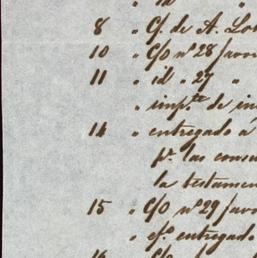 " id "
8 " C/. de A. Lo
10 " C/O nº 28 favo
11 " id " 27 "
" impte de in
14 " entregado á
pr. las consu
la testamen
15 " C/O nº 29 favo
" efo. entregado
16 " C/o